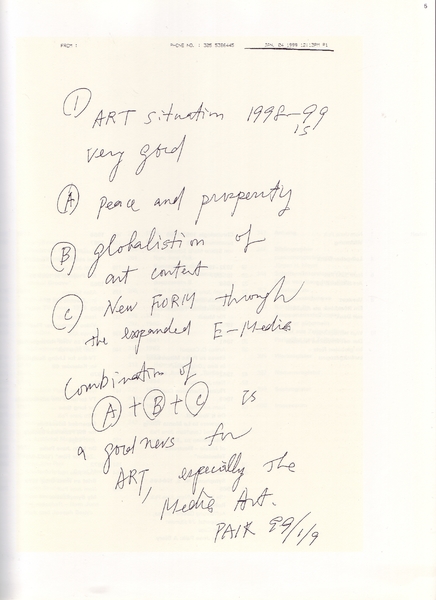 5
FROM : PHONE NO. : 305 5356445 JAN. 04 1999 12:13PM P1
① ART situation 1998-99
is
very good
Ⓐ peace and prosperity
Ⓑ globalistion of
art content
Ⓒ New FORM through
the expanded E-Media
Combination of
Ⓐ + Ⓑ + Ⓒ is
a good news for
ART, especially the
Media Art.
PAIK 99/1/9